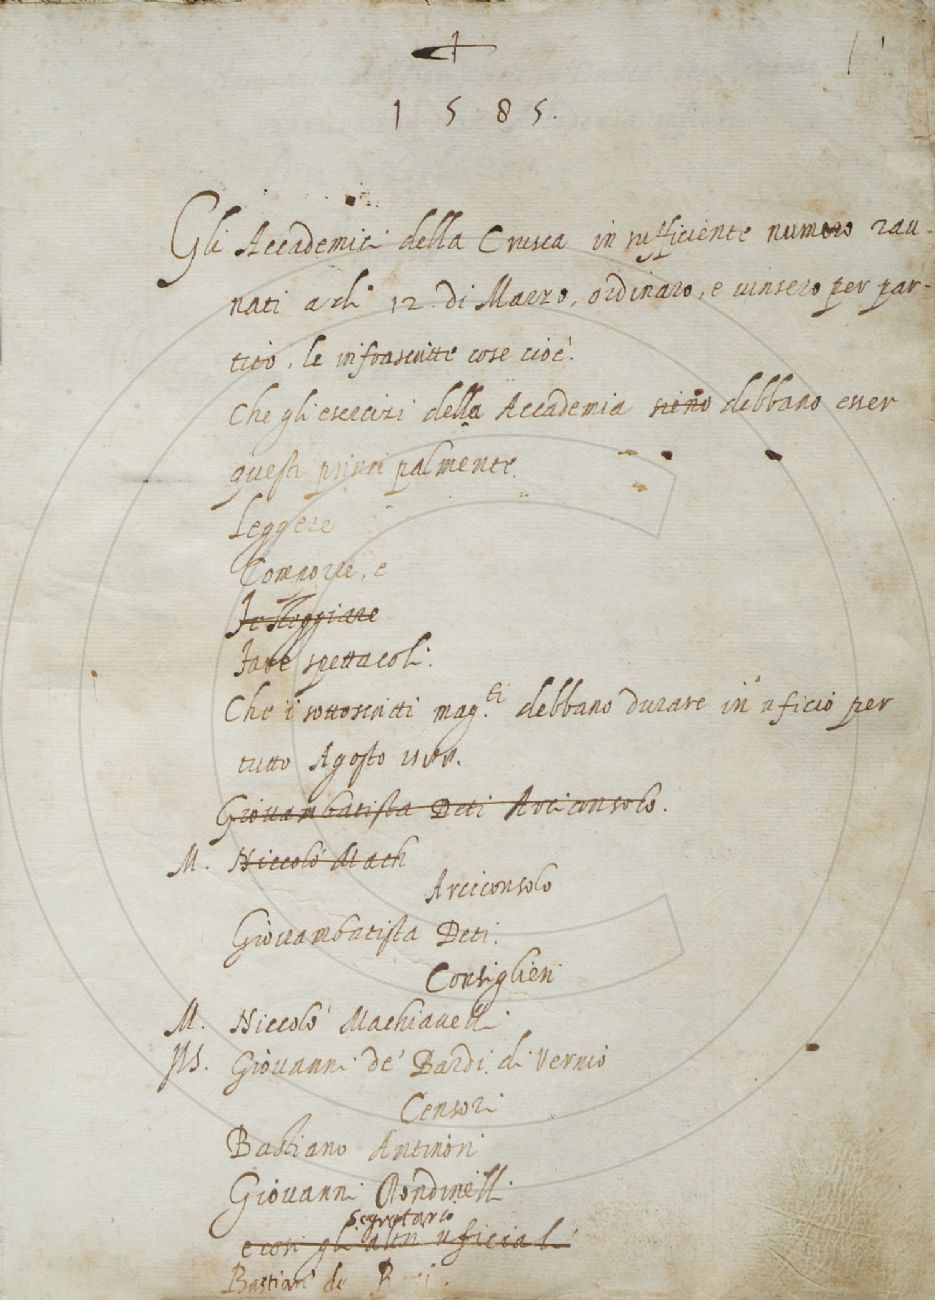 1585.
Gli Accademici della Crusca in sufficiente numero rau-
nati a dì 12 di Marzo, ordinaro, e vinsero per par-
tito, le infrascritte cose cioè.
Che gli esercizi della Accademia sieno debbano esser
questi principalmente
Leggere
Comporre, e
Festeggiare
Fare spettacoli.
Che i sottoscritti mag.ti debbano durare in uficio per
tutto Agosto
Giovambatista Deti Arciconsolo.
M. Niccolò Mach
Arciconsolo
Giovambatista Deti.
Consiglieri
M. Niccolò Machiavelli.
Giovanni de' Bardi di Vernio
Censori
Bastiano Antinori
Giovanni Rondinelli.
Segretario
e con gli altri uficiali
Bastian de